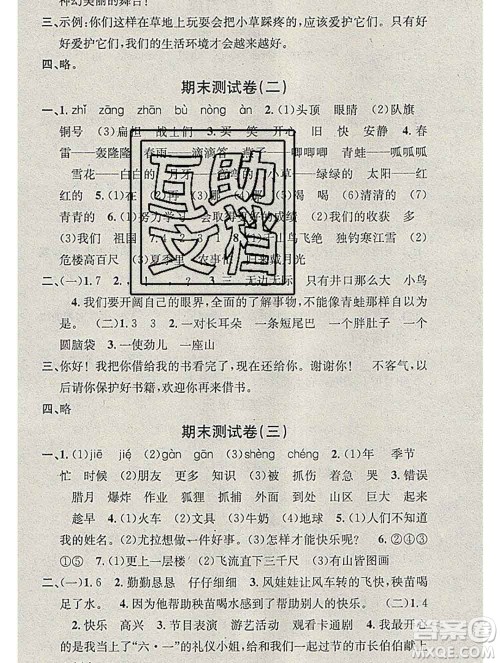 神幻美丽的舞台!
三、示例:你们这样在草地上玩耍会把小草踩疼的,应该爱护它们。只有好
好爱护它们,我们的生活环境才会越来越好。
四、略。
期末测试卷(二)
一、1.zhǐ zāng zhān bù nòng àn 2.(1)头顶 眼睛 (2)队旗
铜号 (3)扁担 战士们 3.买 笑 开心 旧 快 安静 4.春
雷——轰隆隆 春雨——滴滴答 小草——绿绿的 太阳——红
红的 (5)清清的 (7)
青青的 6.(1)努力学习 会取得 好的成绩 (2)我们的收获 多
(3)我们 祖国 8.(1) 独钓寒江雪 (2)
危楼高百尺 夏季 农事忙 归 戴月光
二、(一)1.7 2. 3.无边无际 只有井口那么大 小鸟
4.我们要开阔自己的眼界,全面的了解一个事物,不能像青蛙一样。
(二)1.3 3 2.一对长耳朵 一条短尾巴 一个胖肚子 一个
圆脑袋 3.一使劲儿 一座山
三、你好!我把你借给我的书看完了,现在还给你。谢谢你! 不客气,以
后请你保护好书籍,欢迎你再来借书。
四、略
期末测试卷(三)
一、1.(1)jiē jié (2)gàn gān (3)shèng chéng 2.(1)年 季节
忙 时候 (2)朋友 更多 知识 (3)被 抓伤 厉害 3.错误
腊月 爆炸 作业 狐狸 回家 到处 山区 巨大 起来
趁早 4.(1)火车 (2)文具 (3)牛奶 (4)地球 5.(1)人们忘不了
泼水节。 (2)尤拉想做一个快乐的人。 (3)怎样才能快乐呢? 6.②④③
⑤① 7.(1)更上一层楼 (2)飞流直下三千尺 (3)有山皆图画
二、(一)1.6 2.勤勤恳恳 仔仔细细 3.风娃娃让风车转的飞快,秧苗喝
足了水。 4.我知道了帮助别人的快乐。 (二)1.4
2.快乐 高兴 表演节目 游艺活动 观看卡通剧 3.最使我快乐
的是我当上了“六·一”的礼仪小姐,给和我们一起过节的市长伯伯献上
互助文档